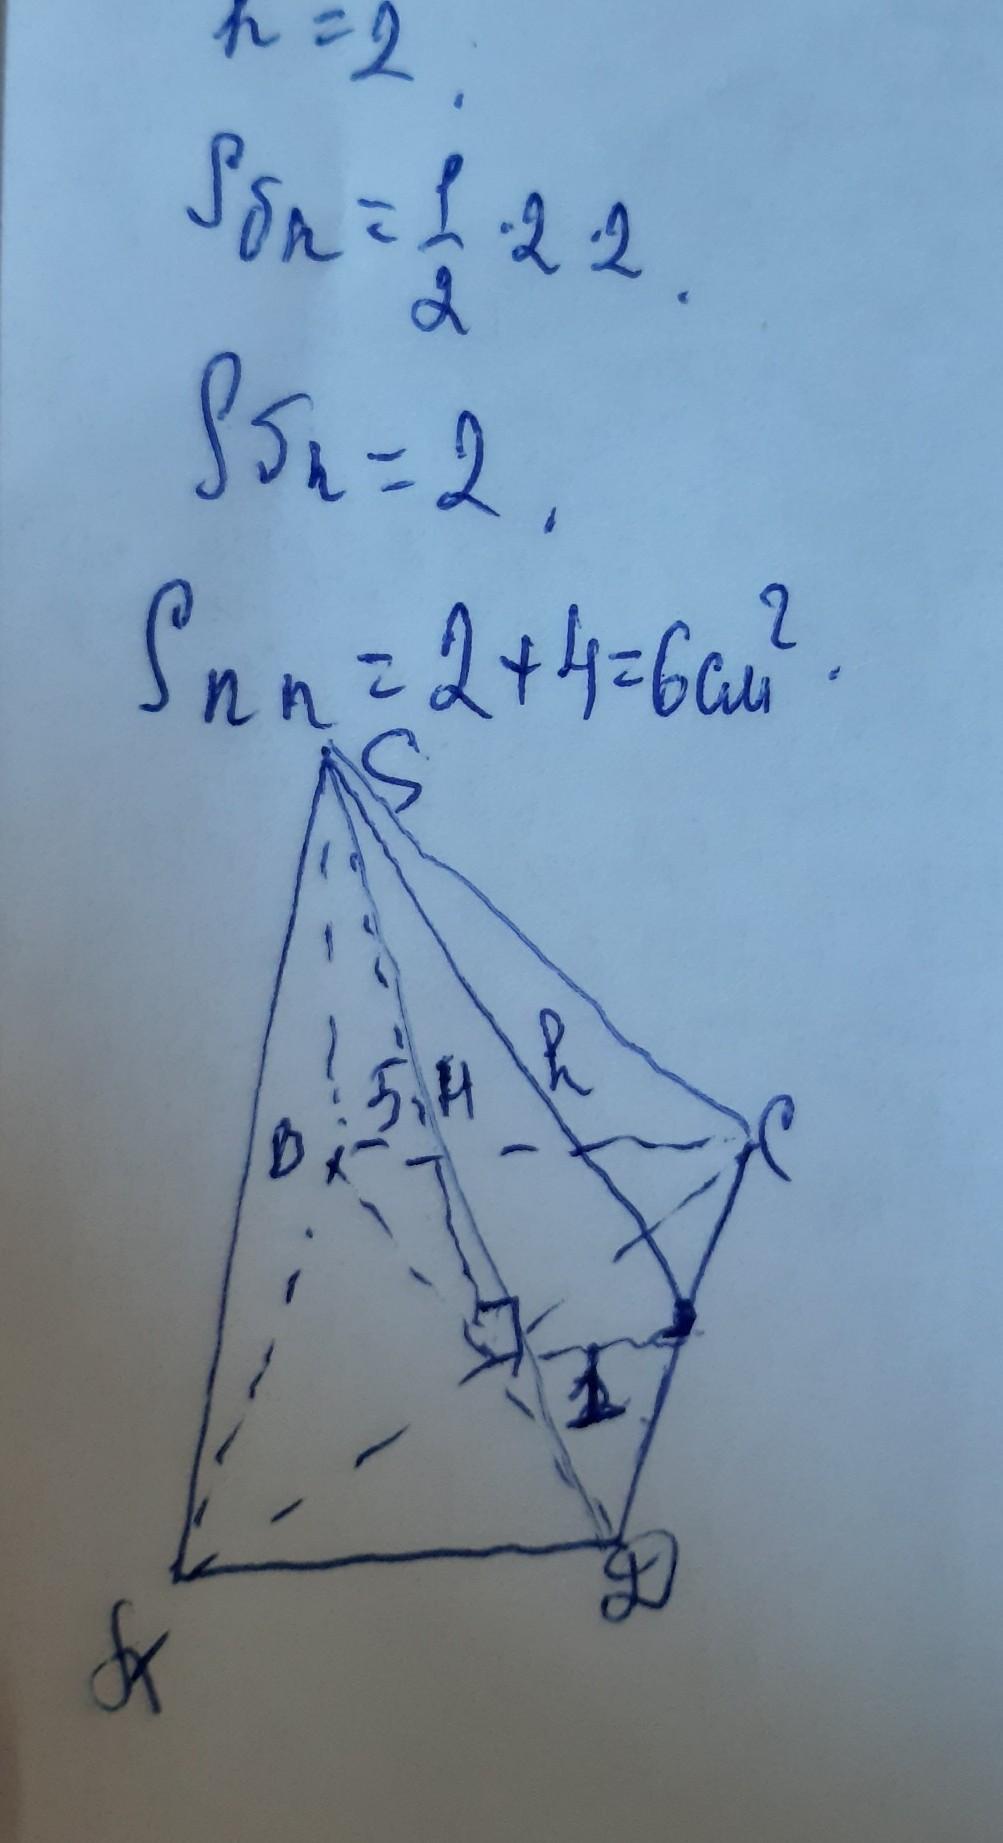 h = 2.
Sбп = 1/2 · 2 · 2.
Sбп = 2.
Sпп = 2 + 4 = 6 см².
S
h
B
C
1
D
A